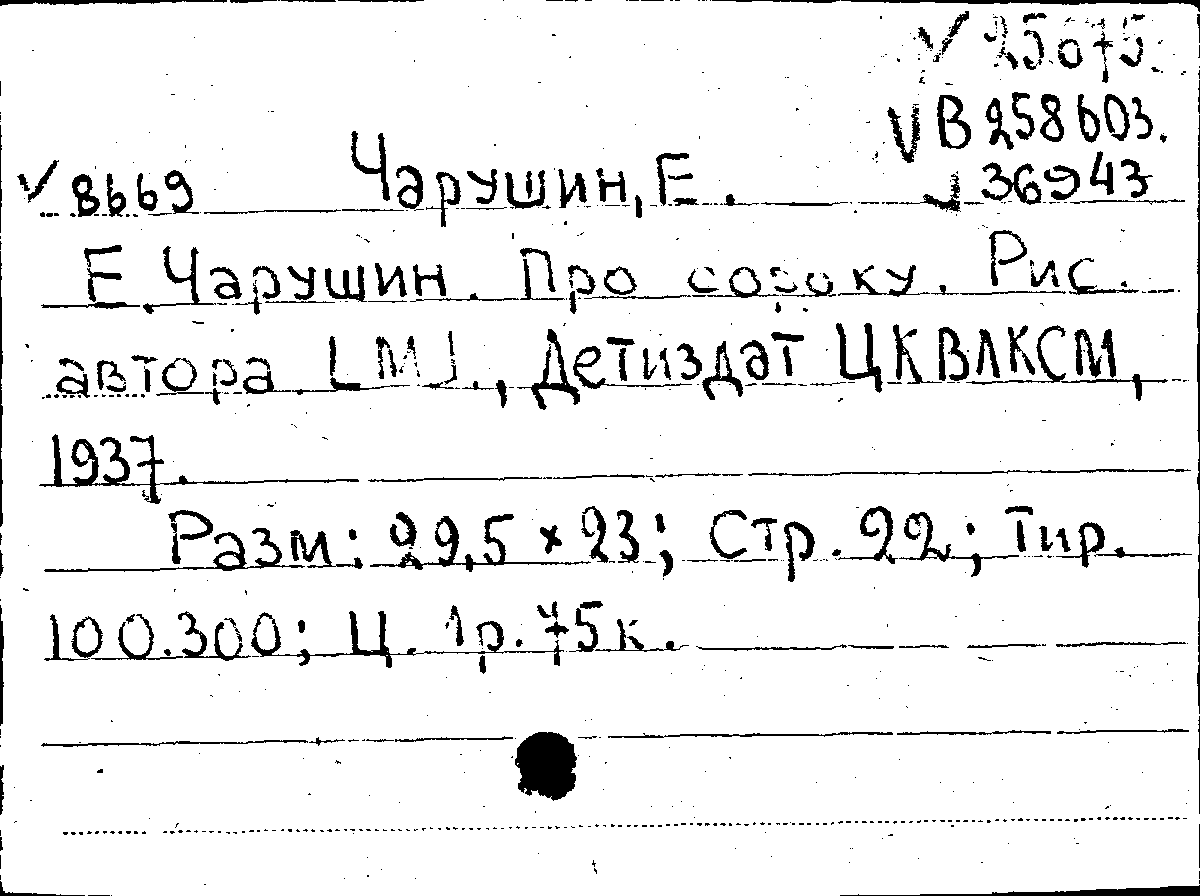 ✓ 25675.
✓ В 258603.
✓ 36943
✓ 8669 Чарушин, Е.
Е. Чарушин. Про сороку. Рис.
автора. [М]., Детиздат ЦКВЛКСМ,
1937.
Разм: 29,5 × 23; Стр. 22; Тир.
100.300; Ц. 1р. 75к.